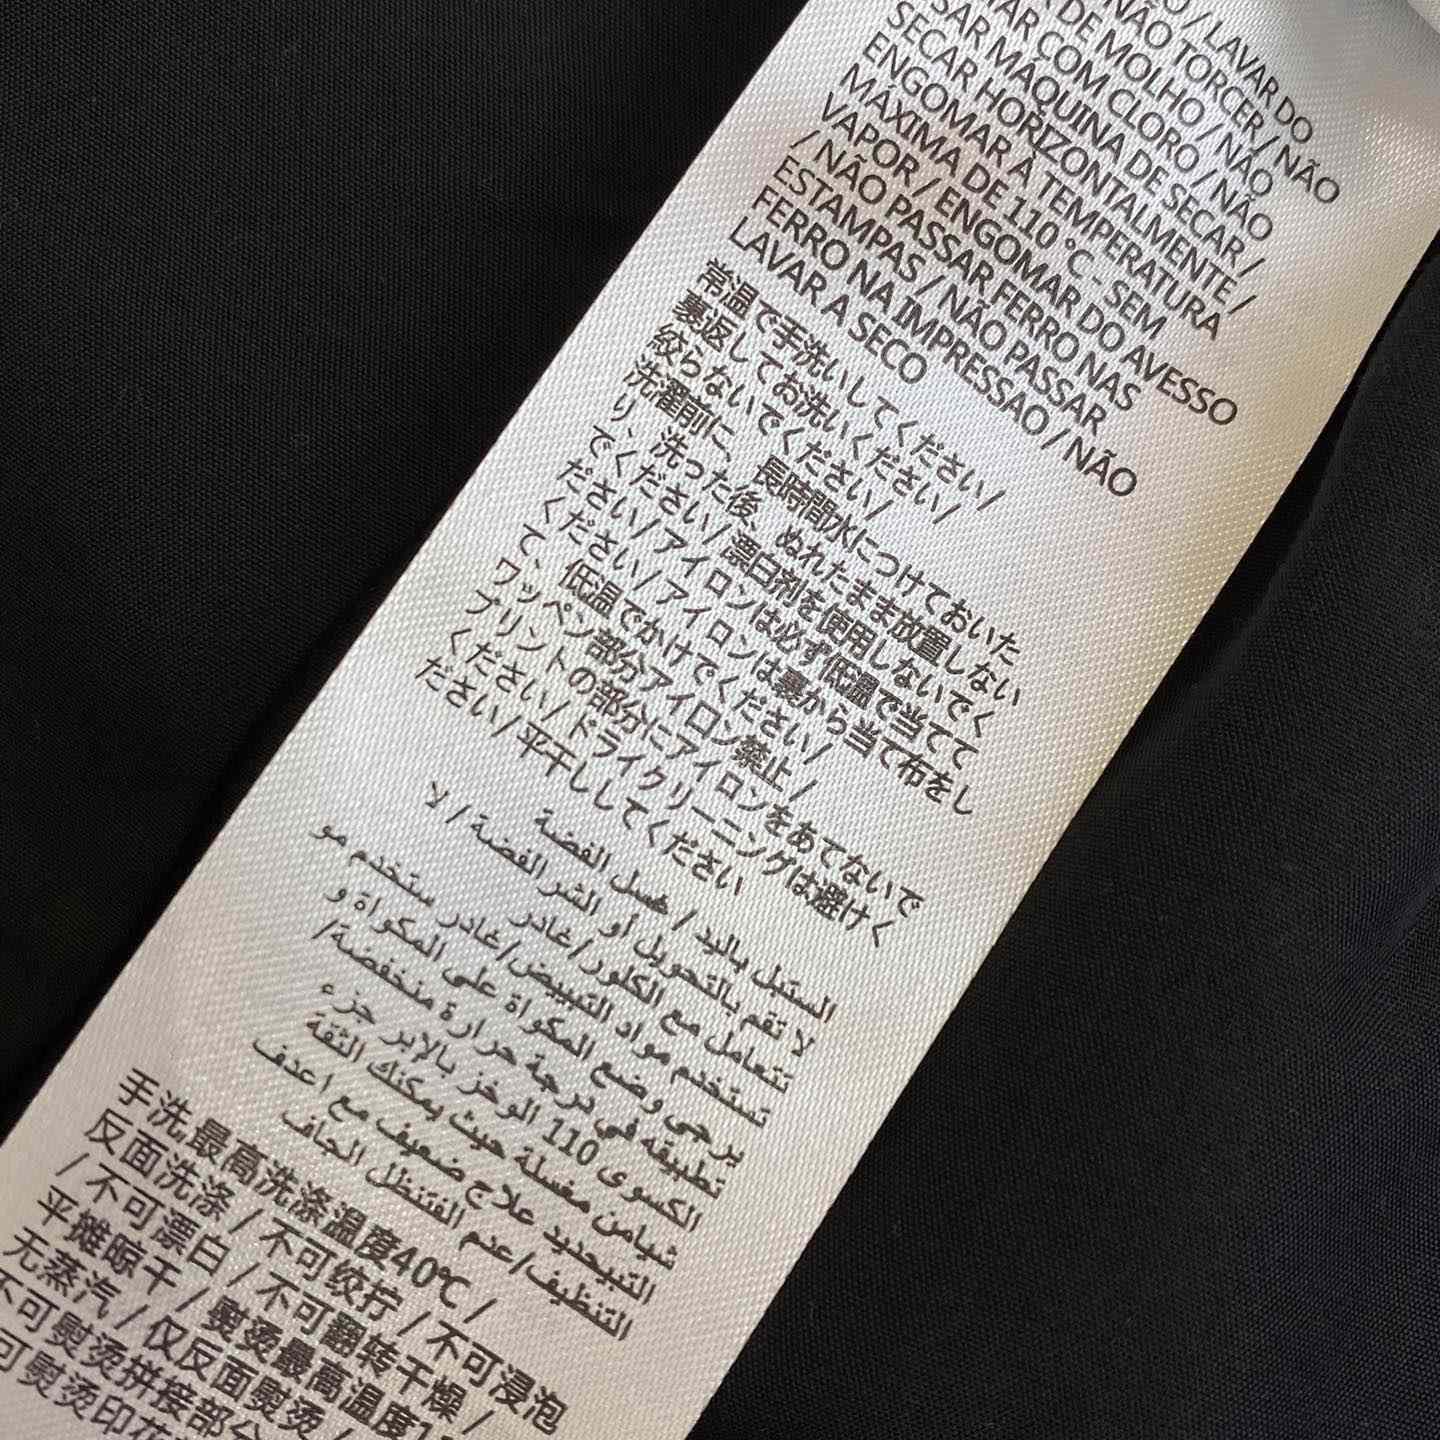 O / LAVAR DO
NÃO TORCER / NÃO
R DE MOLHO / NÃO
AR COM CLORO / NÃO
SAR MÁQUINA DE SECAR /
SECAR HORIZONTALMENTE /
ENGOMAR À TEMPERATURA
MÁXIMA DE 110 °C - SEM
VAPOR / ENGOMAR DO AVESSO
/ NÃO PASSAR FERRO NAS
ESTAMPAS / NÃO PASSAR
FERRO NA IMPRESSAO / NÃO
LAVAR A SECO
常温で手洗いしてください/
裏返してお洗いください/
絞らないでください/
洗濯前に、長時間水につけておいた
り、洗った後、ぬれたまま放置しない
でください/漂白剤を使用しないでく
ださい/アイロンは必ず低温で当てて
ください/アイロンは裏から当て布をし
て、低温でかけてください/
ワッペン部分アイロン禁止/
プリントの部分にアイロンをあてないで
ください/ドライクリーニングは避けく
ださい/平干ししてください
الستبل باليد / غسل الفضة
لا تقم بالتحويل أو الشر الفضة / لا
تتعامل مع الكلور/غادر
تستخدم مواد التبييض/غادر ستخدم مو
يرجى وضع المكواة على المكواة و
تطبيقه في درجة حرارة منخفضة/
الكسوى 110 الوخز بالإبر جزء
شيامن مغسلة حيث يمكنك الثقة
التبيحديد علاج ضعيف مع اعدف
التنظيف/عدم الفتنظل الجاف
手洗,最高洗涤温度40℃ /
反面洗涤 / 不可绞拧 / 不可浸泡
/ 不可漂白 / 不可翻转干燥 /
平摊晾干 / 熨烫最高温度1
无蒸汽 / 仅反面熨烫 /
不可熨烫拼接部分
可熨烫印花